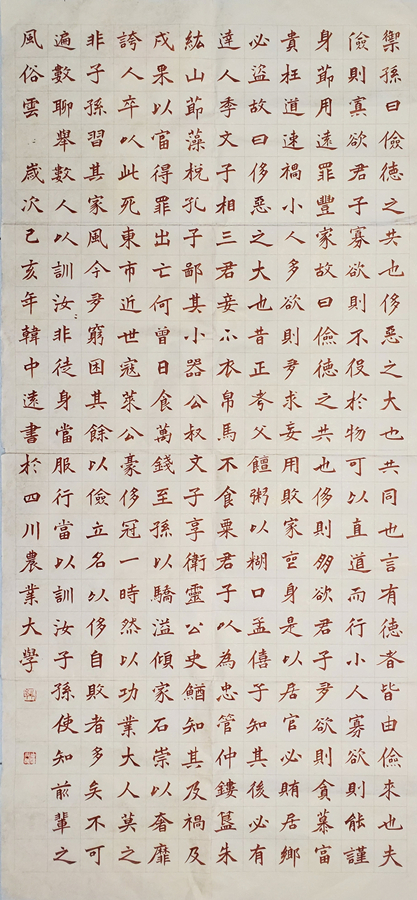 禦孫曰儉德之共也侈惡之大也共同也言有德者皆由儉來也夫
儉則寡欲君子寡欲則不役於物可以直道而行小人寡欲則能謹
身節用遠罪豐家故曰儉德之共也侈則多欲君子多欲則貪慕富
貴枉道速禍小人多欲則多求妄用敗家喪身是以居官必賄居鄉
必盜故曰侈惡之大也昔正考父饘粥以糊口孟僖子知其後必有
達人季文子相三君妾不衣帛馬不食粟君子以為忠管仲鏤簋朱
紘山節藻梲孔子鄙其小器公叔文子享衛靈公史鰌知其及禍及
戌果以富得罪出亡何曾日食萬錢至孫以驕溢傾家石崇以奢靡
誇人卒以此死東市近世寇萊公豪侈冠一時然以功業大人莫之
非子孫習其家風今多窮困其餘以儉立名以侈自敗者多矣不可
遍數聊舉數人以訓汝非徒身當服行當以訓汝子孫使知前輩之
風俗雲 歲次己亥年韓中遠書於四川農業大學